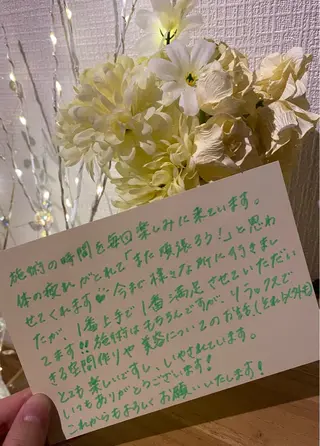 施術の時間を毎回楽しみに来ています。
体の疲れがとれて「また頑張ろう!」と思わ
せてくれます♥ 今まで様々な所に行きまし
たが、1番上手で1番満足させていただい
てます!! 施術はもちろんですが、リラックスで
きる空間作りや美容についてのお話(それ以外も)
とても楽しいですし、いやされています。
いつもありがとうございます!
これからもよろしくお願いいたします!